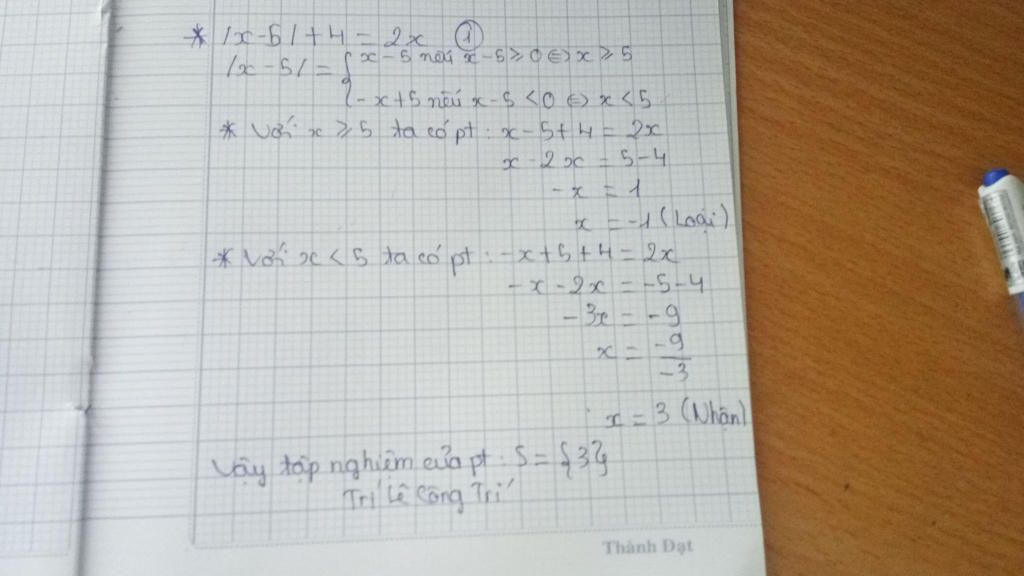 * |x-5|+4 = 2x (1)
|x-5| = { x-5 nếu x-5 ≥ 0 ⇔ x ≥ 5
-x+5 nếu x-5 < 0 ⇔ x < 5
* Với x ≥ 5 ta có pt: x-5+4 = 2x
x-2x = 5-4
-x = 1
x = -1 (Loại)
* Với x < 5 ta có pt: -x+5+4 = 2x
-x-2x = -5-4
-3x = -9
x = -9/-3
x = 3 (Nhận)
Vậy tập nghiệm của pt: S = {3}
Trí Lê Công Trí
Thành Đạt